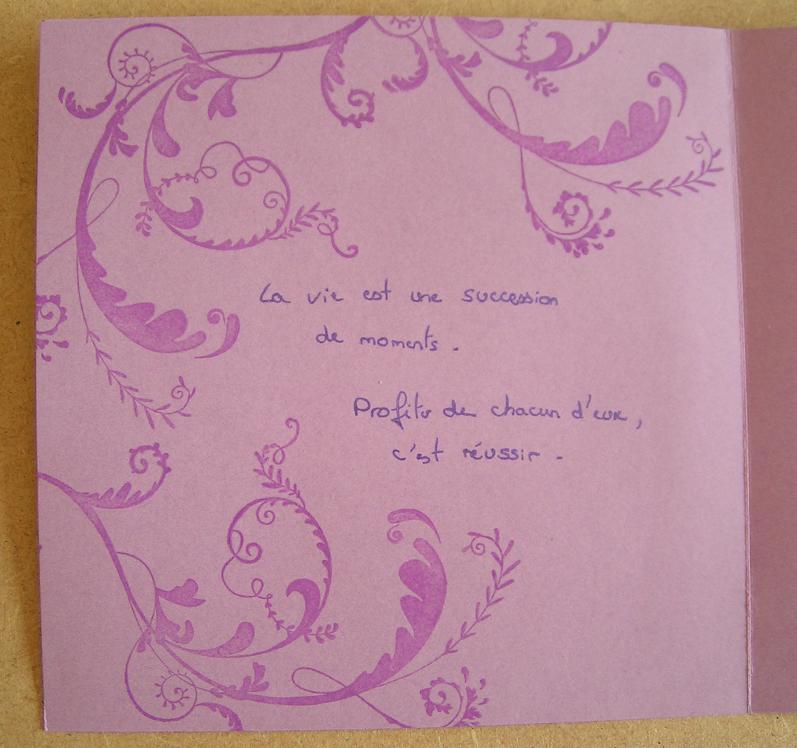 La vie est une succession
de moments.
Profiter de chacun d'eux,
c'est réussir.